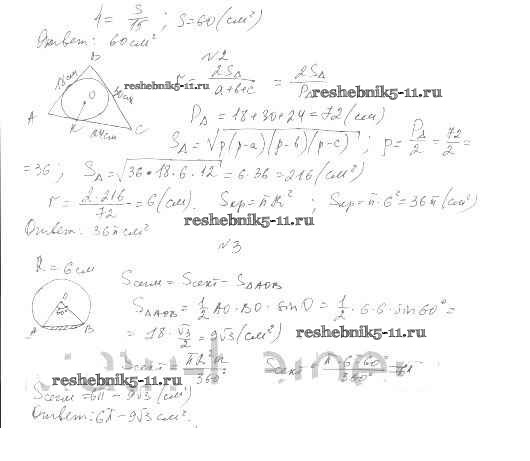 1 = S/15 ; S=60 (см²)
Ответ: 60 см²
N2
B
18см
30см
O
A
K
24см
C
r = 2S△/a+b+c = 2S△/P△
reshebnik5-11.ru
reshebnik5-11.ru
P△ = 18+30+24=72 (см)
S△=√p(p-a)(p-b)(p-c) ; p= P△/2 = 72/2 =
=36 ; S△=√36·18·6·12 = 6·36=216 (см²)
r = 2·216/72 = 6 (см). Sкр= πR² ; Sкр= π·6²=36π (см²)
reshebnik5-11.ru
Ответ: 36π см²
N3
R = 6 см
O
60°
A
B
Sсегм = Sсект - S△AOB
S△AOB = 1/2 AO·BO·sin O = 1/2·6·6·sin60°=
= 18·√3/2 = 9√3 (см²)
reshebnik5-11.ru
Sсект
360°
Sсект
reshebnik5-11.ru
Sсегм=6π - 9√3 (см²)
Ответ: 6π - 9√3 см².